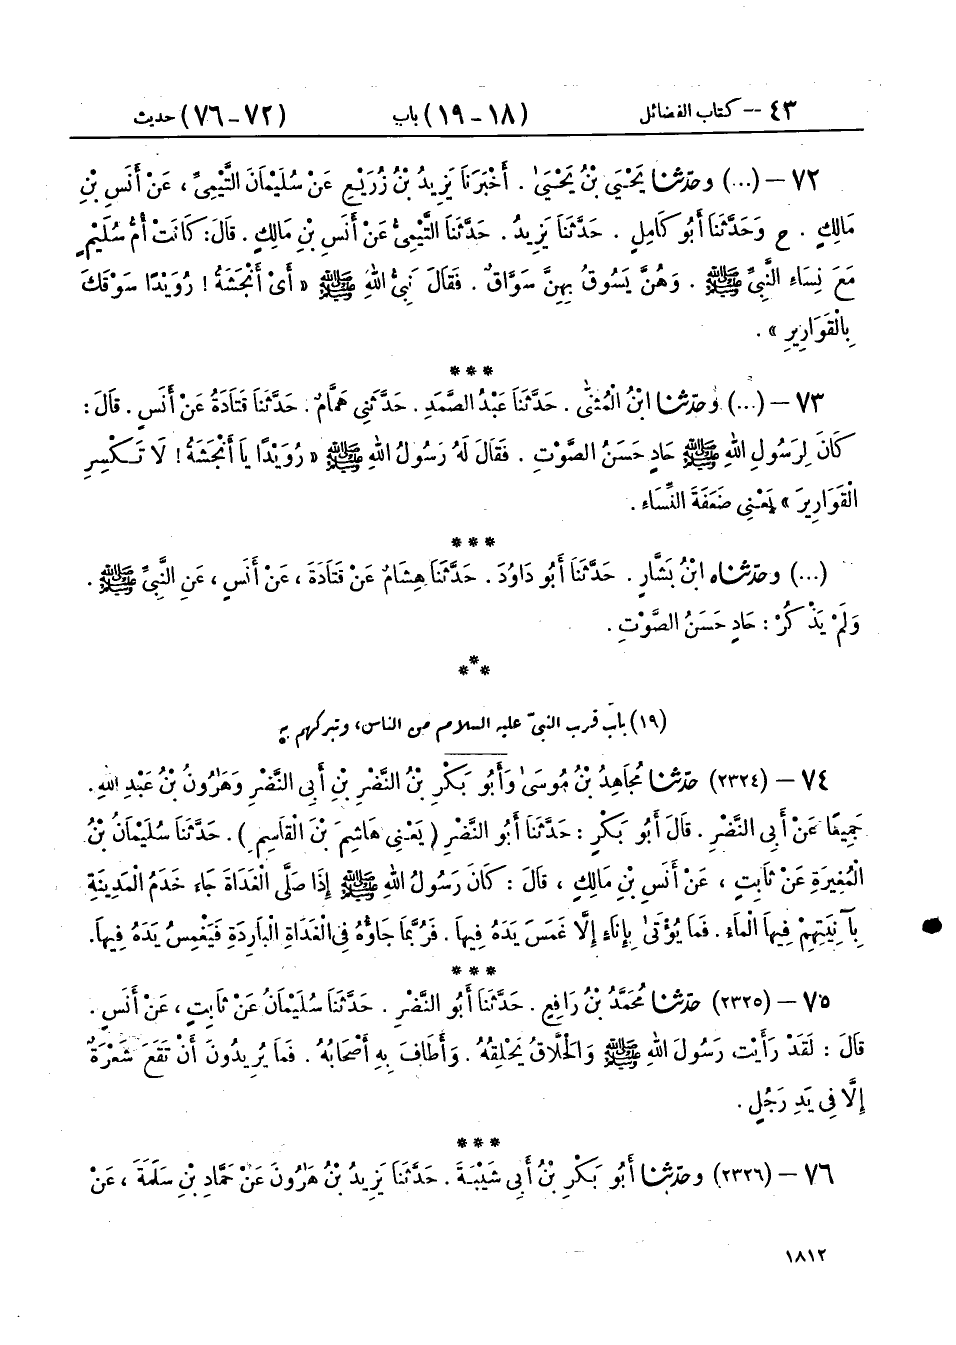 ٤٣ -- كتاب الفضائل (١٨-١٩) باب (٧٢-٧٦) حديث
٧٢ – (...) وحدّثنا يَحْيَىٰ بْنُ يَحْيَىٰ . أَخْبَرَنَا يَزِيدُ بْنُ زُرَيْعٍ عَنْ سُلَيْمَانَ التَّيْمِىِّ ، عَنْ أَنَسِ بْنِ
مَالِكٍ . ح وَحَدَّثَنَا أَبُو كَامِلٍ . حَدَّثَنَا يَزِيدُ . حَدَّثَنَا التَّيْمِىُّ عَنْ أَنَسِ بْنِ مَالِكٍ . قَالَ : كَانَتْ أُمُّ سُلَيْمٍ
مَعَ نِسَاءِ النَّبِىِّ ﷺ . وَهُنَّ يَسُوقُ بِهِنَّ سَوَّاقٌ . فَقَالَ نَبِىُّ اللهِ ﷺ « أَىْ أَنْجَشَةُ ! رُوَيْدًا سَوْقَكَ
بِالْقَوَارِيرِ » .
***
٧٣ – (...) وحدّثنا ابْنُ الْمُثَنَّى . حَدَّثَنَا عَبْدُ الصَّمَدِ . حَدَّثَنِى هَمَّامٌ . حَدَّثَنَا قَتَادَةُ عَنْ أَنَسٍ . قَالَ :
كَانَ لِرَسُولِ اللهِ ﷺ حَادٍ حَسَنُ الصَّوْتِ . فَقَالَ لَهُ رَسُولُ اللهِ ﷺ « رُوَيْدًا يَا أَنْجَشَةُ ! لَا تَكْسِرِ
الْقَوَارِيرَ » يَعْنِى ضَعَفَةَ النِّسَاءِ .
***
(...) وحدّثناه ابْنُ بَشَّارٍ . حَدَّثَنَا أَبُو دَاوُدَ . حَدَّثَنَا هِشَامٌ عَنْ قَتَادَةَ ، عَنْ أَنَسٍ ، عَنِ النَّبِىِّ ﷺ .
وَلَمْ يَذْكُرْ : حَادٍ حَسَنُ الصَّوْتِ .
***
(١٩) باب قرب النبىّ عليه السلام من الناس، وتبركهم به
٧٤ – (٢٣٢٤) حدّثنا مُجَاهِدُ بْنُ مُوسَىٰ وَأَبُو بَكْرِ بْنُ النَّضْرِ بْنِ أَبِى النَّضْرِ وَهَٰرُونُ بْنُ عَبْدِ اللهِ .
جَمِيعًا عَنْ أَبِى النَّضْرِ . قَالَ أَبُو بَكْرٍ : حَدَّثَنَا أَبُو النَّضْرِ ( يَعْنِى هَاشِمَ بْنَ الْقَاسِمِ ) . حَدَّثَنَا سُلَيْمَانُ بْنُ
الْمُغِيرَةِ عَنْ ثَابِتٍ ، عَنْ أَنَسِ بْنِ مَالِكٍ ، قَالَ : كَانَ رَسُولُ اللهِ ﷺ إِذَا صَلَّى الْغَدَاةَ جَاءَ خَدَمُ الْمَدِينَةِ
بِآنِيَتِهِمْ فِيهَا الْمَاءُ . فَمَا يُؤْتَىٰ بِإِنَاءٍ إِلَّا غَمَسَ يَدَهُ فِيهَا . فَرُبَّمَا جَاؤُهُ فِى الْغَدَاةِ الْبَارِدَةِ فَيَغْمِسُ يَدَهُ فِيهَا .
***
٧٥ – (٢٣٢٥) حدّثنا مُحَمَّدُ بْنُ رَافِعٍ . حَدَّثَنَا أَبُو النَّضْرِ . حَدَّثَنَا سُلَيْمَانُ عَنْ ثَابِتٍ ، عَنْ أَنَسٍ .
قَالَ : لَقَدْ رَأَيْت رَسُولَ اللهِ ﷺ وَالْحَلَّاقُ يَحْلِقُهُ . وَأَطَافَ بِهِ أَصْحَابُهُ . فَمَا يُرِيدُونَ أَنْ تَقَعَ شَعْرَةٌ
إِلَّا فِى يَدِ رَجُلٍ .
***
٧٦ – (٢٣٢٦) وحدّثنا أَبُو بَكْرِ بْنُ أَبِى شَيْبَةَ . حَدَّثَنَا يَزِيدُ بْنُ هَٰرُونَ عَنْ حَمَّادِ بْنِ سَلَمَةَ ، عَنْ
١٨١٢